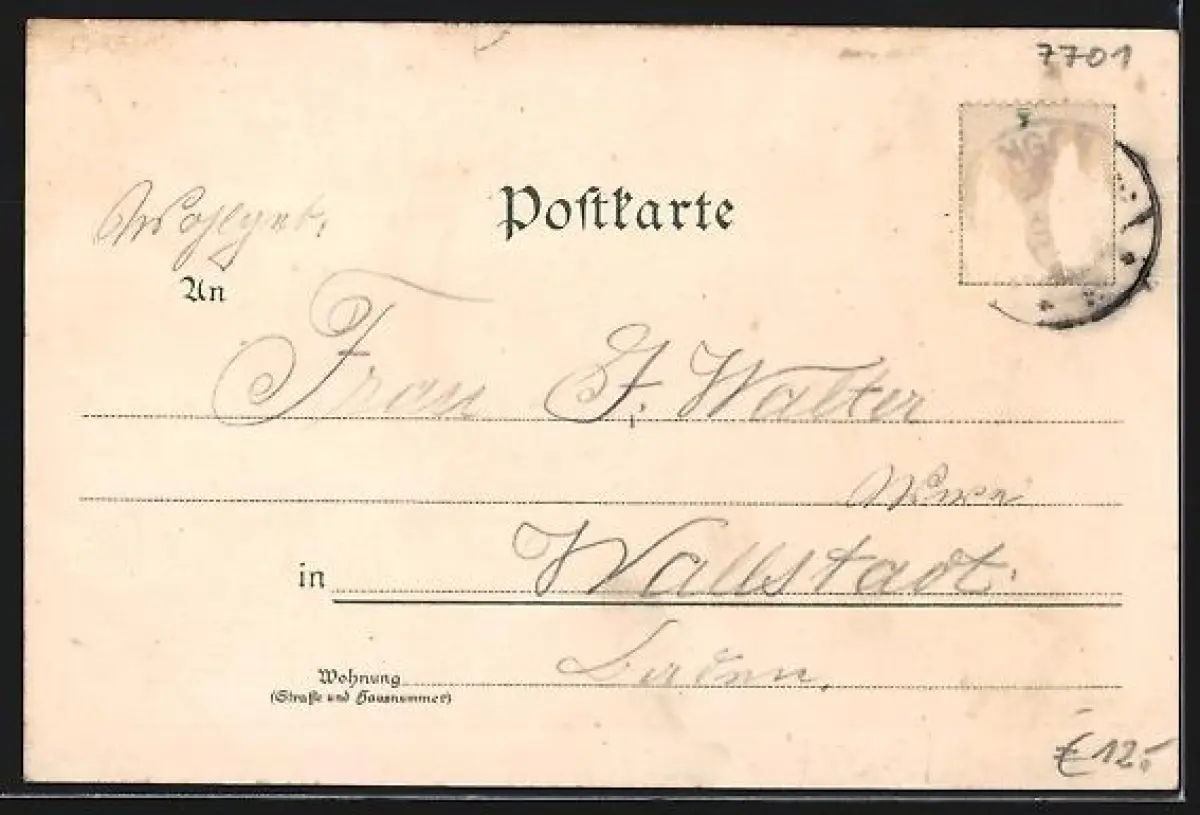 7701
Postkarte
Wohlgeb.
An
Frau J. Walter
Wwe
in Wallstadt.
Wohnung Baden.
(Straße und Hausnummer)
€ 12,-